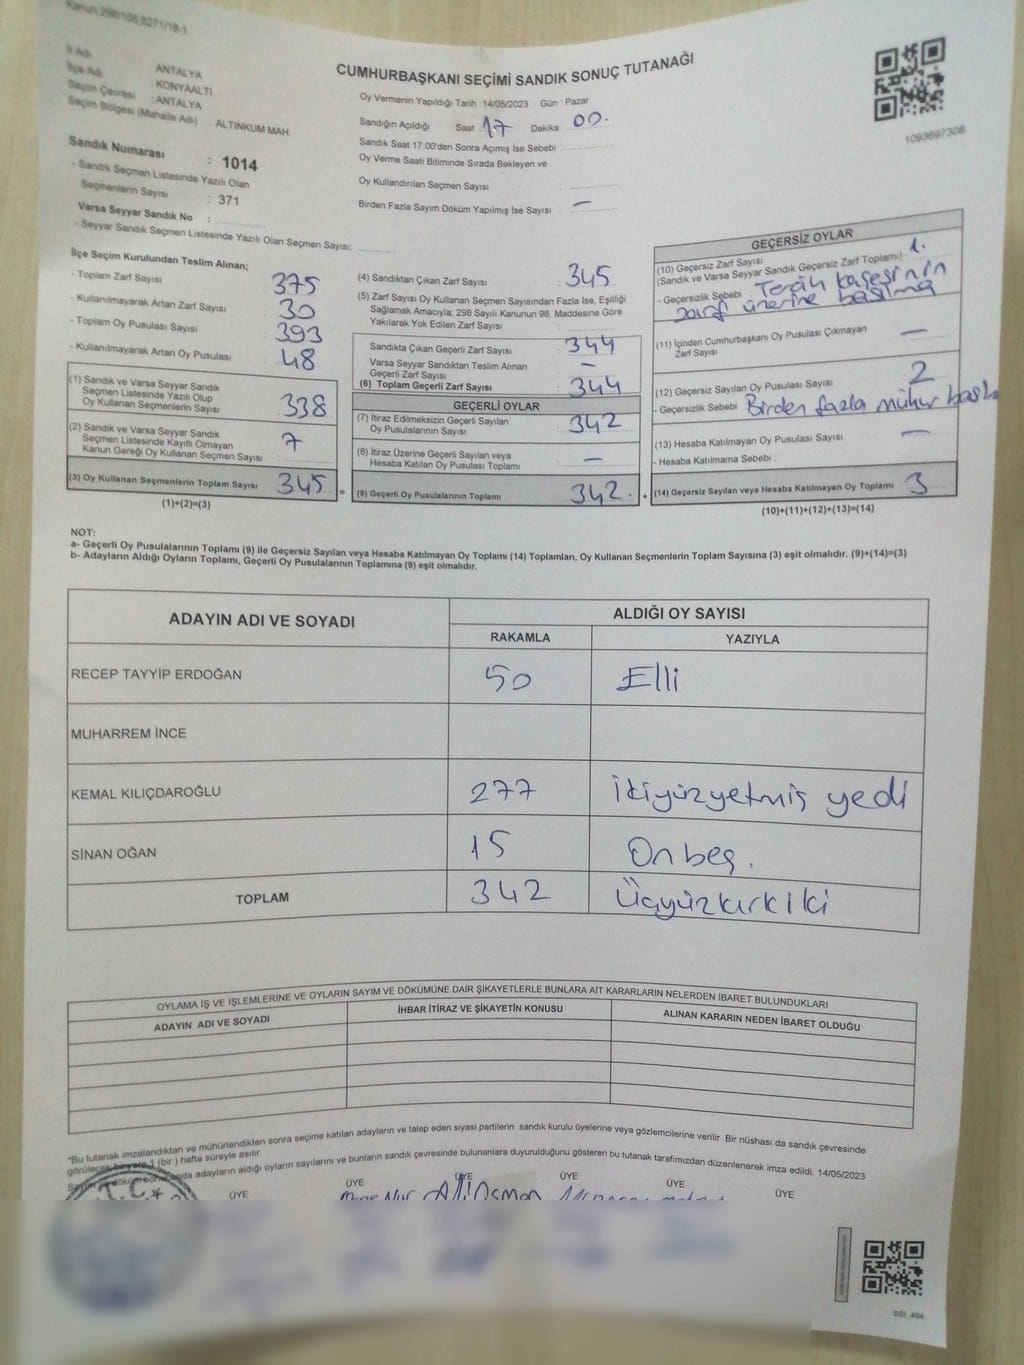 Kanun 298/105,6271/18-1
İl Adı ANTALYA
İlçe Adı KONYAALTI
Seçim Çevresi : ANTALYA
Seçim Bölgesi (Mahalle Adı) ALTINKUM MAH
Sandık Numarası : 1014
- Sandık Seçmen Listesinde Yazılı Olan
Seçmenlerin Sayısı : 371
Varsa Seyyar Sandık No :
- Seyyar Sandık Seçmen Listesinde Yazılı Olan Seçmen Sayısı:
CUMHURBAŞKANI SEÇİMİ SANDIK SONUÇ TUTANAĞI
Oy Vermenin Yapıldığı Tarih : 14/05/2023 Gün : Pazar
Sandığın Açıldığı Saat : 17 Dakika : 00.
Sandık Saat 17.00'den Sonra Açımış İse Sebebi :
Oy Verme Saati Bitiminde Sırada Bekleyen ve
Oy Kullandırılan Seçmen Sayısı :
Birden Fazla Sayım Döküm Yapılmış İse Sayısı : —
1093697306
İlçe Seçim Kurulundan Teslim Alınan;
- Toplam Zarf Sayısı 375
- Kullanılmayarak Artan Zarf Sayısı : 30
- Toplam Oy Pusulası Sayısı : 393
- Kullanılmayarak Artan Oy Pusulası : 48
(1) Sandık ve Varsa Seyyar Sandık
Seçmen Listesinde Yazılı Olup
Oy Kullanan Seçmenlerin Sayısı : 338
(2) Sandık ve Varsa Seyyar Sandık
Seçmen Listesinde Kayıtlı Olmayan
Kanun Gereği Oy Kullanan Seçmen Sayısı : 7
(3) Oy Kullanan Seçmenlerin Toplam Sayısı : 345 =
(1)+(2)=(3)
(4) Sandıktan Çıkan Zarf Sayısı : 345
(5) Zarf Sayısı Oy Kullanan Seçmen Sayısından Fazla İse, Eşitliği
Sağlamak Amacıyla; 298 Sayılı Kanunun 98. Maddesine Göre
Yakılarak Yok Edilen Zarf Sayısı :
Sandıkta Çıkan Geçerli Zarf Sayısı : 344
Varsa Seyyar Sandıktan Teslim Alınan
Geçerli Zarf Sayısı : —
(6) Toplam Geçerli Zarf Sayısı : 344
GEÇERLİ OYLAR
(7) İtiraz Edilmeksizin Geçerli Sayılan
Oy Pusulalarının Sayısı : 342
(8) İtiraz Üzerine Geçerli Sayılan veya
Hesaba Katılan Oy Pusulası Toplamı : —
(9) Geçerli Oy Pusulalarının Toplamı : 342. +
GEÇERSİZ OYLAR
(10) Geçersiz Zarf Sayısı
(Sandık ve Varsa Seyyar Sandık Geçersiz Zarf Toplamı) : 1.
- Geçersizlik Sebebi : Tercih kaşesinin
zarf üzerine basılma
(11) İçinden Cumhurbaşkanı Oy Pusulası Çıkmayan
Zarf Sayısı : —
(12) Geçersiz Sayılan Oy Pusulası Sayısı : 2
- Geçersizlik Sebebi : Birden fazla mühür
(13) Hesaba Katılmayan Oy Pusulası Sayısı : —
- Hesaba Katılmama Sebebi :
(14) Geçersiz Sayılan veya Hesaba Katılmayan Oy Toplamı : 3
(10)+(11)+(12)+(13)=(14)
NOT:
a- Geçerli Oy Pusulalarının Toplamı (9) ile Geçersiz Sayılan veya Hesaba Katılmayan Oy Toplamı (14) Toplamları, Oy Kullanan Seçmenlerin Toplam Sayısına (3) eşit olmalıdır. (9)+(14)=(3)
b- Adayların Aldığı Oyların Toplamı, Geçerli Oy Pusulalarının Toplamına (9) eşit olmalıdır.
ADAYIN ADI VE SOYADI ALDIĞI OY SAYISI
RAKAMLA YAZIYLA
RECEP TAYYİP ERDOĞAN 50 Elli
MUHARREM İNCE
KEMAL KILIÇDAROĞLU 277 İkiyüzyetmiş yedi
SİNAN OĞAN 15 Onbeş.
TOPLAM 342 Üçyüzkırkiki
OYLAMA İŞ VE İŞLEMLERİNE VE OYLARIN SAYIM VE DÖKÜMÜNE DAİR ŞİKAYETLERLE BUNLARA AİT KARARLARIN NELERDEN İBARET BULUNDUKLARI
ADAYIN ADI VE SOYADI İHBAR İTİRAZ VE ŞİKAYETİN KONUSU ALINAN KARARIN NEDEN İBARET OLDUĞU
*Bu tutanak imzalandıktan ve mühürlendikten sonra seçime katılan adayların ve talep eden siyasi partilerin sandık kurulu üyelerine veya gözlemcilerine verilir. Bir nüshası da sandık çevresinde
görülecek bir yere 1 (bir ) hafta süreyle asılır.
adayların aldığı oyların sayılarını ve bunların sandık çevresinde bulunanlara duyurulduğunu gösteren bu tutanak tarafımızdan düzenlenerek imza edildi. 14/05/2023
ÜYE ÜYE ÜYE ÜYE ÜYE ÜYE
T.C.
Ali Osman